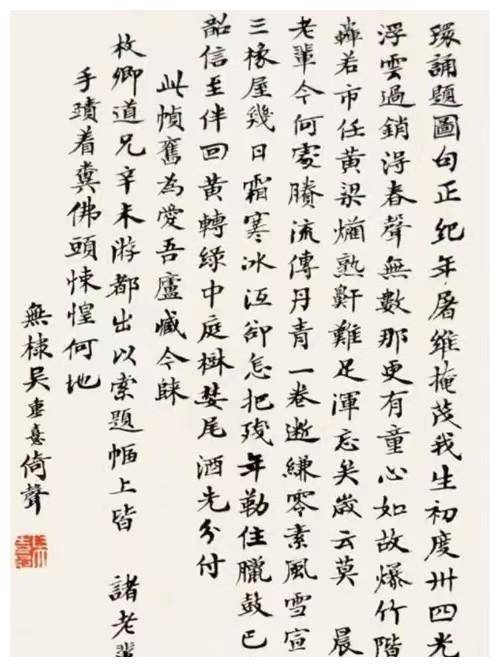 環誦題圖句正紀年屠維掩茂我生初度卅四光
浮雲過銷淂春聲無數那更有童心如故爆竹階
轟若市任黃粱熟鼾難足渾忘矣歲云莫 晨
老輩今何處賸流傳丹青一卷逝縑零素風雪宣
三椽屋幾日霜寒冰沍卻怎把殘年勒住臘鼓巴
韶信至伴回黃轉綠中庭樹婪尾酒先分付
此幀舊為愛吾廬臧今歸
枚卿道兄辛未游都出以索題幅上皆 諸老輩
手蹟着糞佛頭悚惶何地
無棣吳重憙倚聲